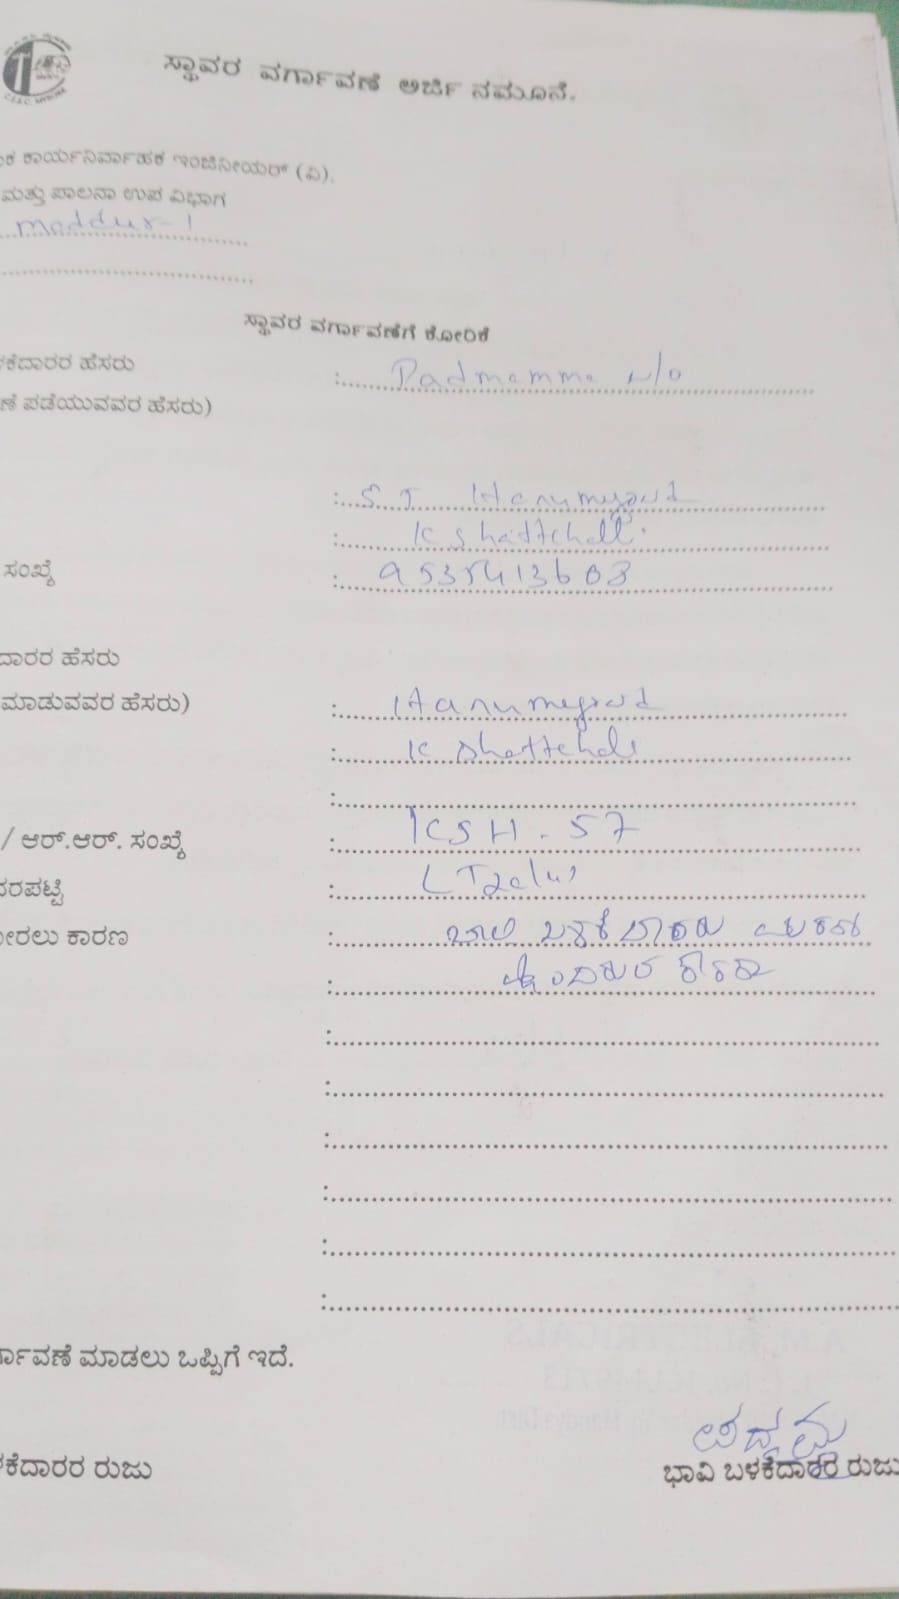 ಸ್ಥಾವರ ವರ್ಗಾವಣೆ ಅರ್ಜಿ ನಮೂನೆ.
ಕಾರ್ಯನಿರ್ವಾಹಕ ಇಂಜಿನೀಯರ್ (ವಿ).
ಮತ್ತು ಪಾಲನಾ ಉಪ ವಿಭಾಗ
maddur-1
ಸ್ಥಾವರ ವರ್ಗಾವಣೆಗೆ ಕೋರಿಕೆ
ಕೆದಾರರ ಹೆಸರು : Padmamma w/o
ಣೆ ಪಡೆಯುವವರ ಹೆಸರು)
: S. T Hanumegowd
: K Shettehalli
ಸಂಖ್ಯೆ : 9535413603
ದಾರರ ಹೆಸರು
ಮಾಡುವವರ ಹೆಸರು) : Hanumegowd
: K Shettehali
:
/ ಆರ್.ಆರ್. ಸಂಖ್ಯೆ : KSH - 57
ದರಪಟ್ಟಿ :
ೋರಲು ಕಾರಣ : ಹಾಲಿ ಬಳಕೆದಾರರು ಮರಣ
: ಹೊಂದಿರುವ
:
:
:
:
:
:
ರ್ಗಾವಣೆ ಮಾಡಲು ಒಪ್ಪಿಗೆ ಇದೆ.
ಪದ್ಮಮ್ಮ
ಕೆದಾರರ ರುಜು ಭಾವಿ ಬಳಕೆದಾರರ ರುಜು